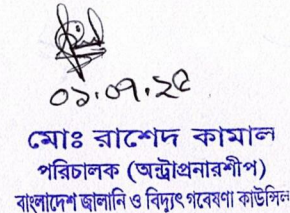 ০১.০৭.২৫
মোঃ রাশেদ কামাল
পরিচালক (অন্ট্রাপ্রনারশীপ)
বাংলাদেশ জ্বালানি ও বিদ্যুৎ গবেষণা কাউন্সিল